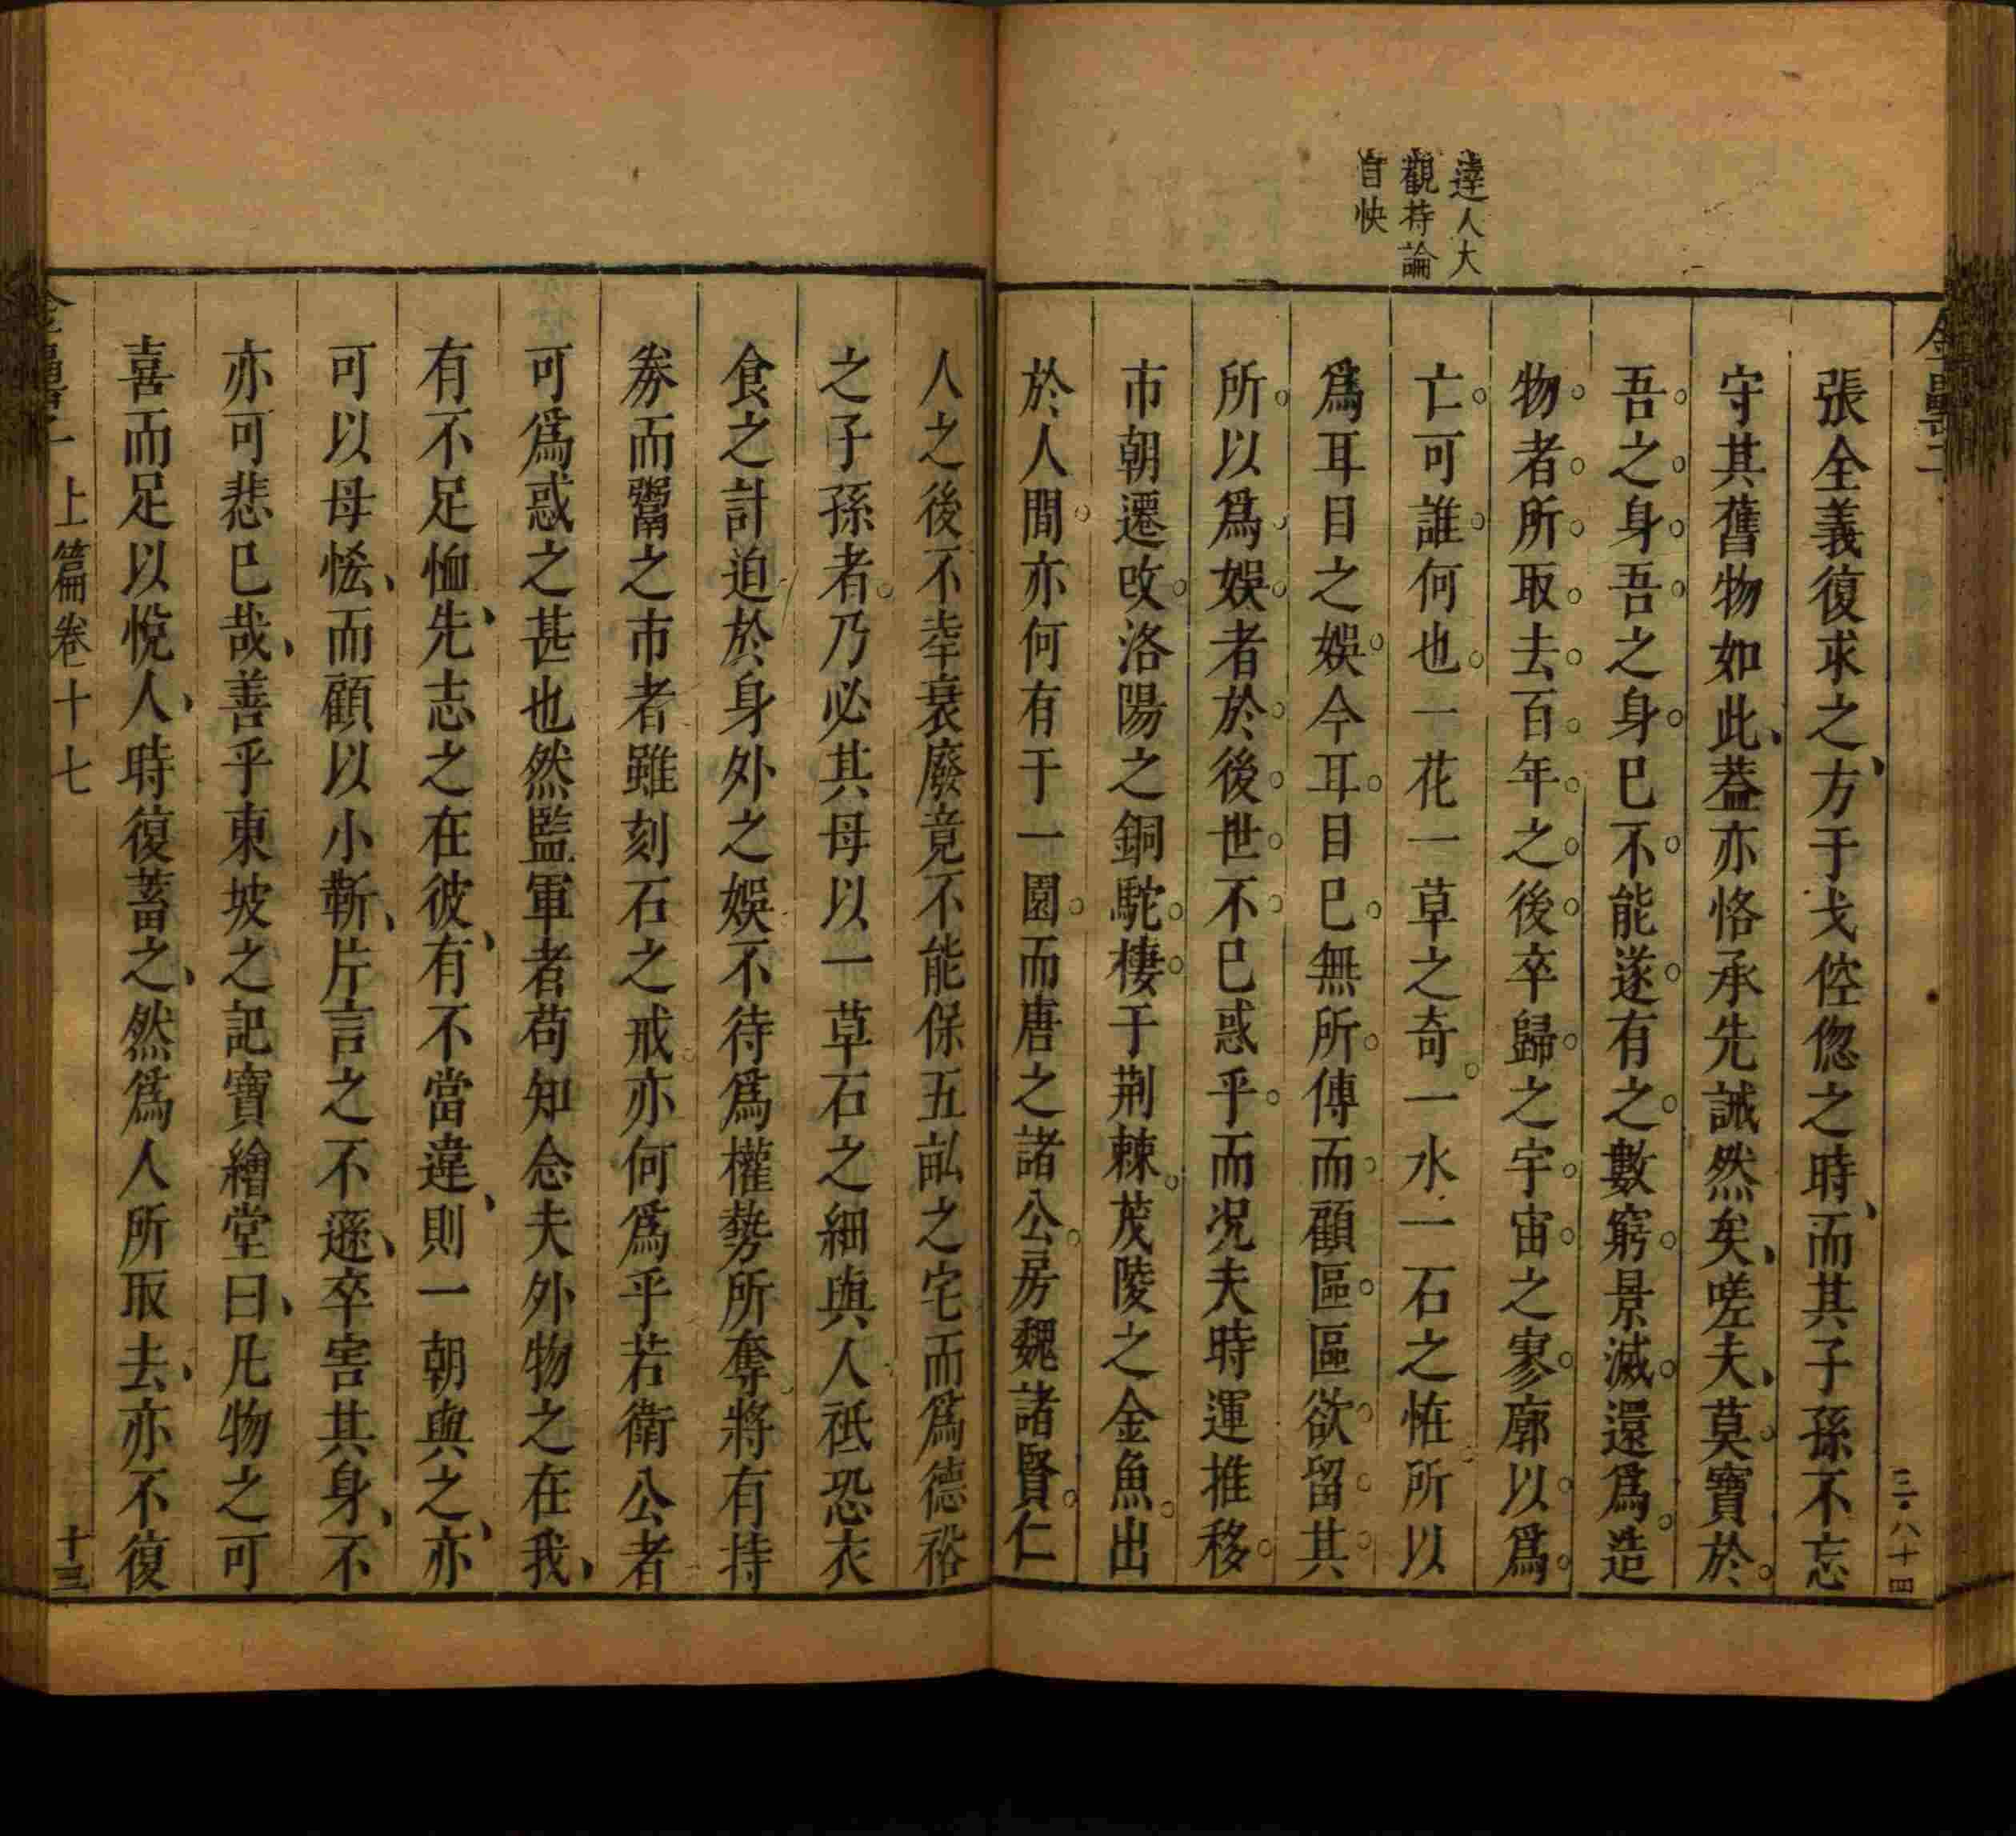 達人大
觀持論
自快
張全義復求之方于戈倥傯之時而其子孫不忘
守其舊物如此葢亦恪承先誡然矣嗟夫莫寶於
吾之身吾之身已不能遂有之數窮景滅還爲造
物者所取去百年之後卒歸之宇宙之寥廓以爲
亡可誰何也一花一草之奇一水一石之恠所以
爲耳目之娛今耳目已無所傳而顧區區欲留其
所以爲娛者於後世不已惑乎而况夫時運推移
市朝遷改洛陽之銅駝棲于荆棘茂陵之金魚出
於人間亦何有于一園而唐之諸公房魏諸賢仁
三·八十四
人之後不幸衰廢竟不能保五畆之宅而爲德裕
之子孫者乃必其母以一草石之細與人祇恐衣
食之計迫於身外之娛不待爲權勢所奪將有持
券而鬻之市者雖刻石之戒亦何爲乎若衛公者
可爲惑之甚也然監軍者苟知念夫外物之在我
有不足恤先志之在彼有不當違則一朝與之亦
可以母恡而顧以小靳片言之不遜卒害其身不
亦可悲已哉善乎東坡之記寶繪堂曰凡物之可
喜而足以悅人時復蓄之然爲人所取去亦不復
上篇卷十七
十三